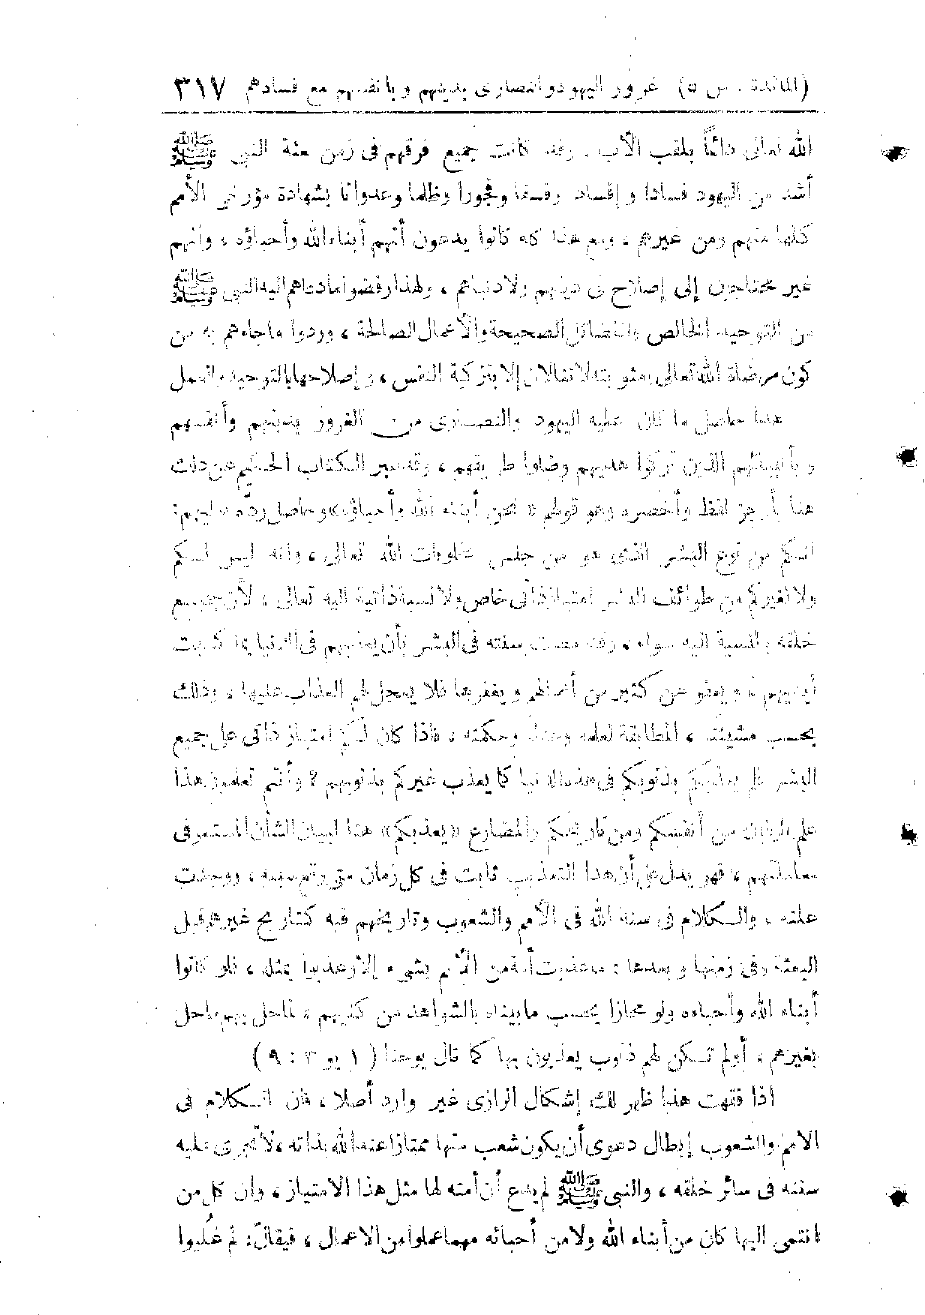 (المائدة . س ٥) غرور اليهود والنصارى بدينهم وبأنفسهم مع فسادهم ٣١٧
الله تعالى دائماً بلقب الأب . وقد كانت جميع فرقهم فى زمن بعثة النبى ﷺ
أشد من اليهود فسادا وإفسادا وفسقا وفجورا وظلما وعدوانا بشهادة مؤرخى الأمم
كلها منهم ومن غيرهم ، ومع هذا كله كانوا يدعون أنهم أبناء الله وأحباؤه ، وأنهم
غير محتاجين إلى إصلاح فى دينهم ولا دنياهم ، ولهذا رفضوا ما دعاهم اليه النبى ﷺ
من التوحيد الخالص والفضائل الصحيحة والأعمال الصالحة ، وردوا ما جاءهم به من
كون مرضاة الله تعالى ومثوبته لا تنالان إلا بتزكية النفس ، وإصلاحها بالتوحيد والعمل
هذا حاصل ما كان عليه اليهود والنصارى من الغرور بدينهم وأنفسهم
وبأنبيائهم الذين تركوا هديهم وضلوا طريقهم ، وقد عبر الكتاب الحكيم عن ذلك
هنا بأوجز لفظ وأخصره وهو قولهم « نحن أبناء الله وأحباؤه» وحاصل رده عليهم:
انكم من نوع البشر الذى هو من جنس مخلوقات الله تعالى ، وانه ليس لكم
ولا لغيركم من طوائف البشر امتياز ذاتى خاص ولا نسبة ذاتية اليه تعالى ، لأن جميع
خلقه بالنسبة اليه سواء ، وقد مضت سنته فى البشر بأن يعذبهم فى الدنيا بما كسبت
أيديهم ، ويعفو عن كثير من أعمالهم ويغفرها فلا يعجل لهم العذاب عليها ، وذلك
بحسب مشيئته ، المطابقة لعلمه وعدله وحكمته ، فاذا كان لكم امتياز ذاتى على جميع
البشر فلم يعذبكم بذنوبكم فى هذه الدنيا كما يعذب غيركم بذنوبهم ؟ وأنتم تعلمون هذا
علم من أنفسكم ومن تاريخكم والمضارع «يعذبكم» هذا لبيان الشأن المستمر فى
معاملتهم ، فهو يدل على أن هذا التعذيب ثابت فى كل زمان متى وقع سببه ، ووجدت
علته ، والكلام فى سنة الله فى الأمم والشعوب وتاريخهم فيه كتاريخ غيرهم قبل
البعثة وفى زمنها وبعدها : ما عذبت أمة من الأمم بشىء إلا وعذبوا بمثله ، فلو كانوا
أبناء الله وأحباءه ولو مجازا بحسب ما بيناه بالشواهد من كتبهم ، لما حل بهم ما حل
بغيرهم ، أو لم تكن لهم ذنوب يعذبون بها كما قال يوحنا ( ١ يو ٣ : ٩ )
اذا فقهت هذا ظهر لك إشكال الرازى غير وارد أصلا ، فان الكلام فى
الامم والشعوب إبطال دعوى أن يكون شعب منها ممتازا عند الله بذاته ، لا تجرى عليه
سننه فى سائر خلقه ، والنبى ﷺ لم يدع أن أمته لها مثل هذا الامتياز ، وان كل من
انتمى اليها كان من أبناء الله ولا من أحبائه مهما عملوا من الاعمال ، فيقال: لم غُلبوا